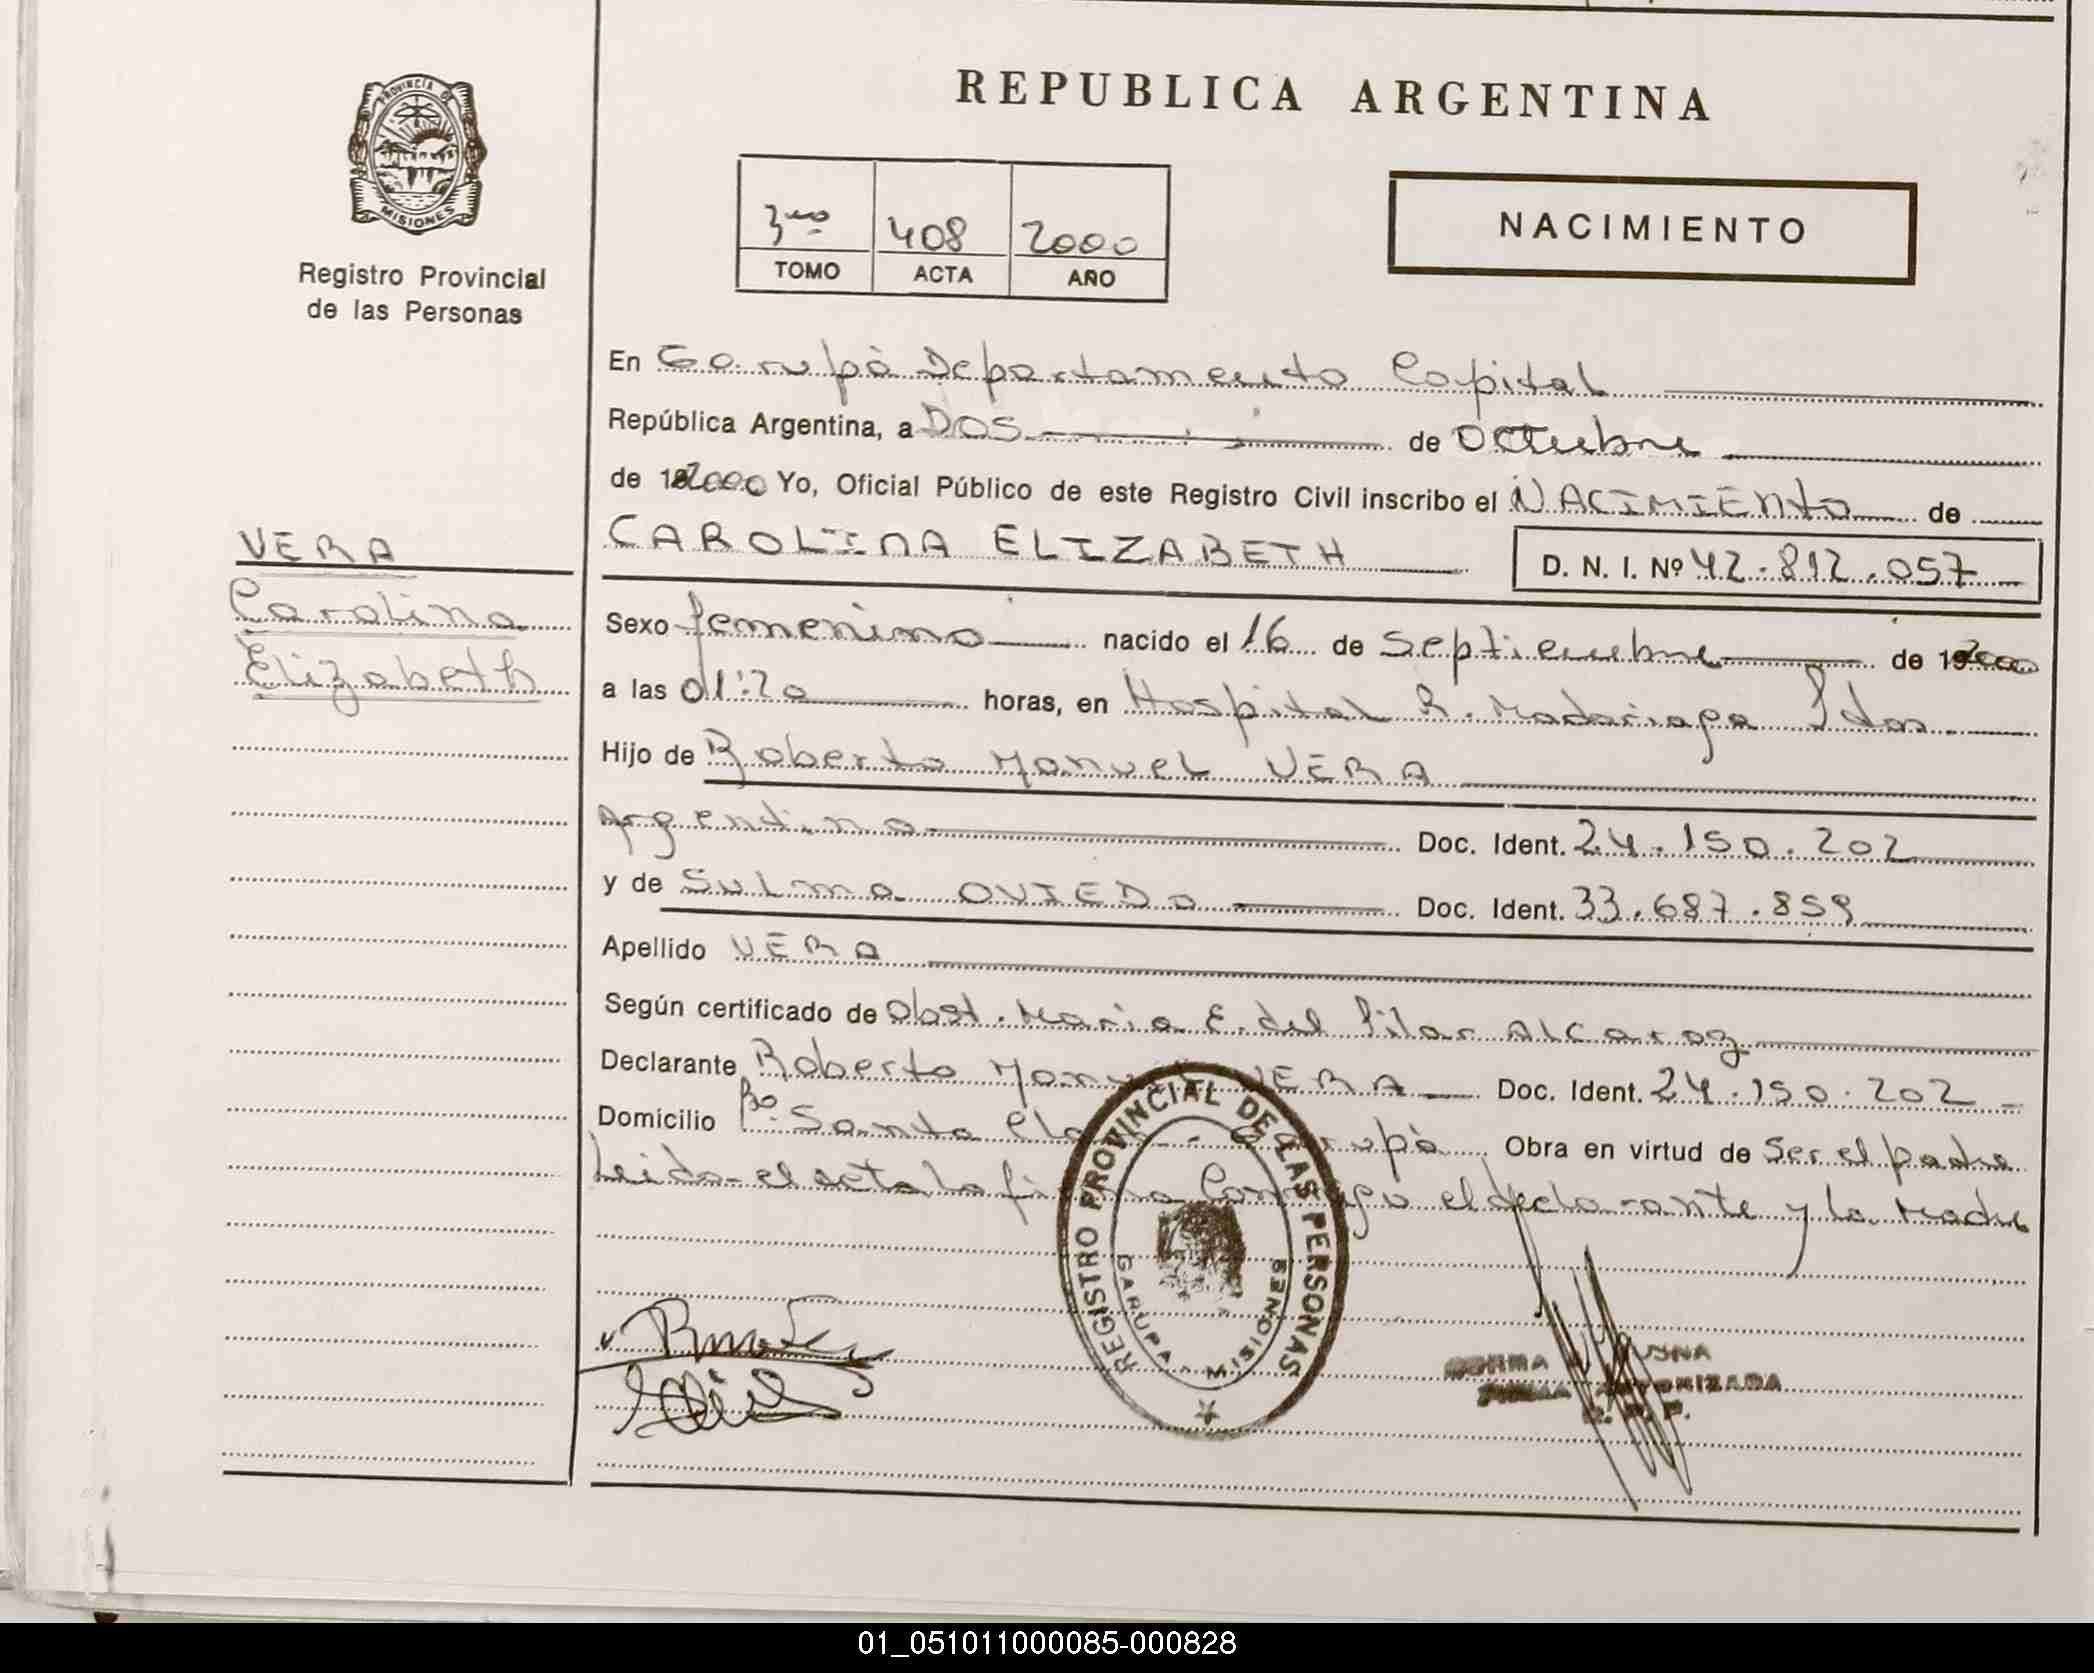 REPUBLICA ARGENTINA
PROVINCIA DE
MISIONES
Registro Provincial
de las Personas
3ro 408 2000
TOMO ACTA AÑO
NACIMIENTO
En Garupà Departamento Capital
República Argentina, a DOS de Octubre
de 192000 Yo, Oficial Público de este Registro Civil inscribo el NACIMIENTO de
VERA
Carolina
Elizabeth
CAROLINA ELIZABETH D. N. I. Nº 42.812.057
Sexo femenino nacido el 16 de Septiembre de 192000
a las 01:20 horas, en Hospital R. Madariaga Pdas.
Hijo de Roberto Manuel VERA
Argentina Doc. Ident. 24.150.202
y de Sulma OVIEDO Doc. Ident. 33.687.859
Apellido VERA
Según certificado de Obst. Maria E. del Pilar Alcaraz
Declarante Roberto Manuel VERA Doc. Ident. 24.150.202
Domicilio Bº Santa Clara - Garupà Obra en virtud de Ser el padre
Leida el acta la firma Conmigo el declarante y la Madre
REGISTRO PROVINCIAL DE LAS PERSONAS
GARUPA - MISIONES
NORMA
FIRMA AUTORIZADA
R. P. P.
01_051011000085-000828